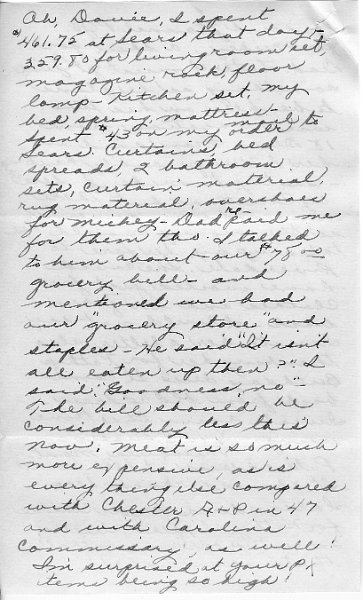 Ah, Davie, I spent
$461.75 at Sears that day-
359.80 for livingroom set,
magazine rack, floor
lamp - Kitchen set, my
bed, spring, mattress-
spent $43 on my mail order to
Sears. Curtains, bed
spreads, 2 bathroom
sets, curtain material,
rug material, overshoes
for Mickey - Dad paid me
for them tho. I talked
to him about our $78.00
grocery bill - and
mentioned we had
our "grocery store" and
staples - He said "It isn't
all eaten up then?" I
said, "Goodness, no" -
The bill should be
considerably les this
now. Meat is so much
more expensive, as is
every thing else compared
with Chester A+P in 47
and with Carolina
commissary, as well!
I'm surprised at your PX
items being so high!